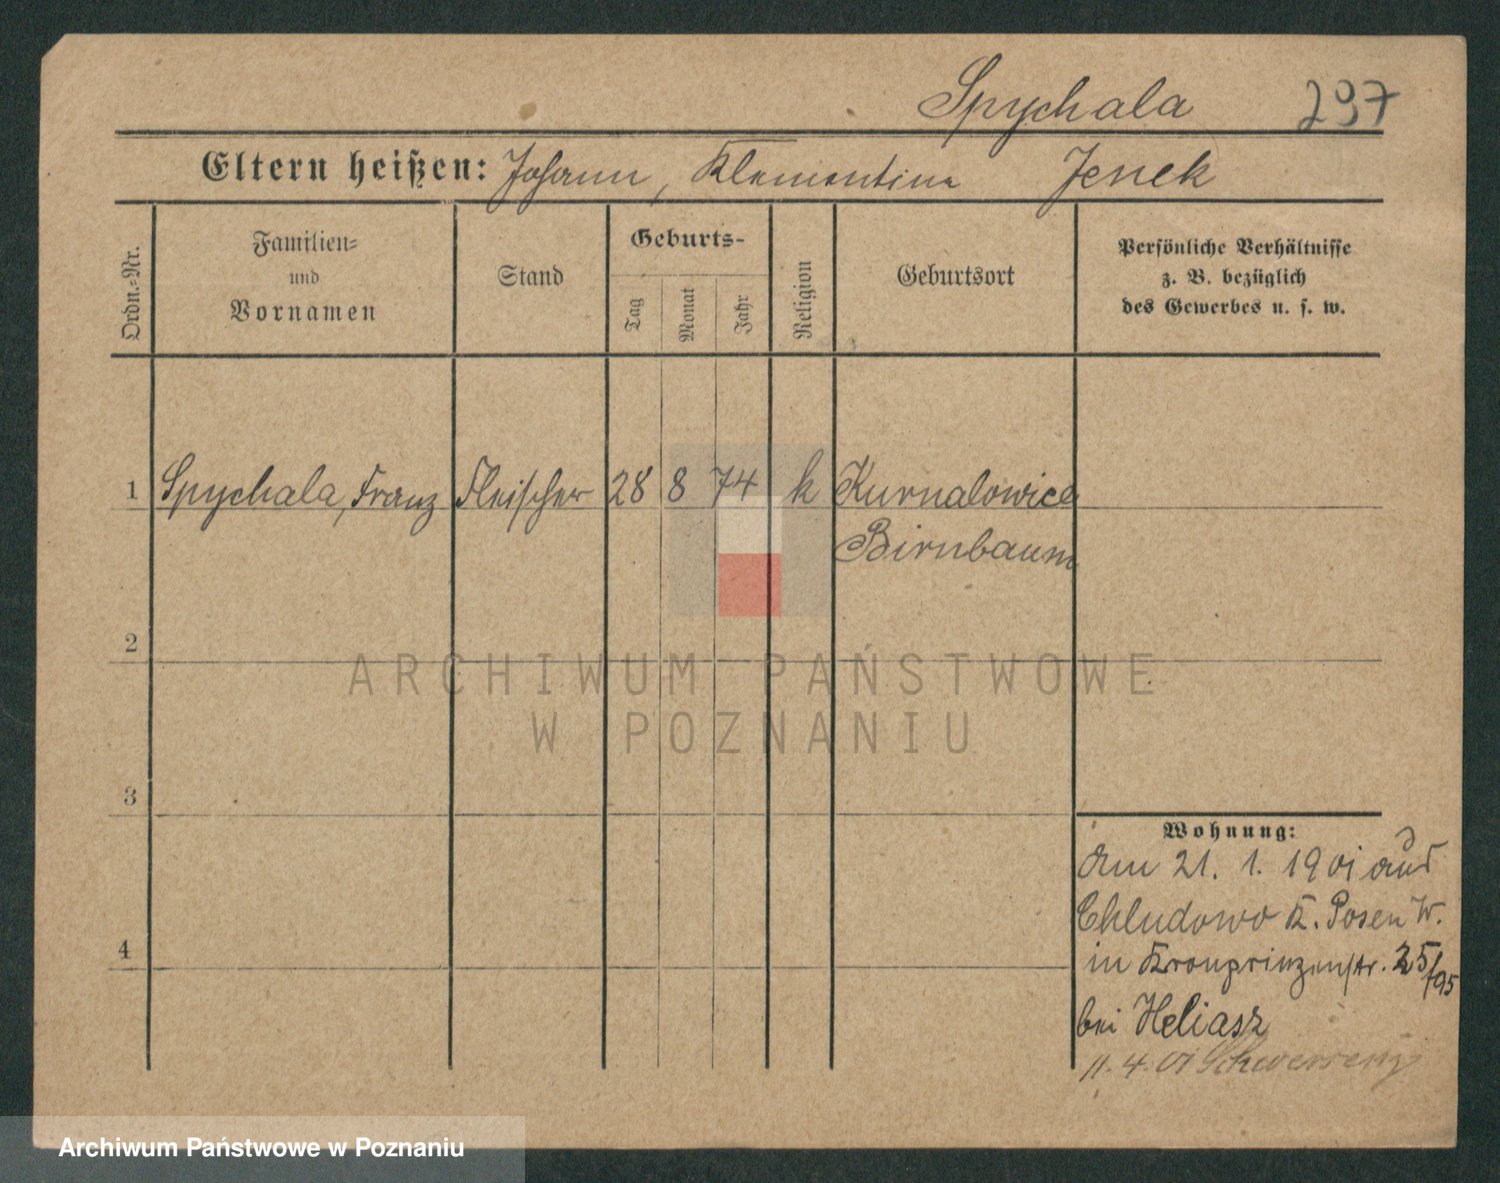 Spychala 297
Eltern heißen: Johann, Klementina Jenek
Ordn.-Nr.
Familien-
und
Vornamen
Stand
Geburts-
Tag
Monat
Jahr
Religion
Geburtsort
Persönliche Verhältnisse
z. B. bezüglich
des Gewerbes u. s. w.
1 Spychala, Franz Fleischer 28 8 74 k Kurnalowice
Birnbaum
2
ARCHIWUM PAŃSTWOWE
W POZNANIU
3
Wohnung:
Am 21. 1. 1901 aus
Chludowo K. Posen W.
4
in Kronprinzenstr. 25/95
bei Heliasz
11. 4. 01 Schwersenz
Archiwum Państwowe w Poznaniu